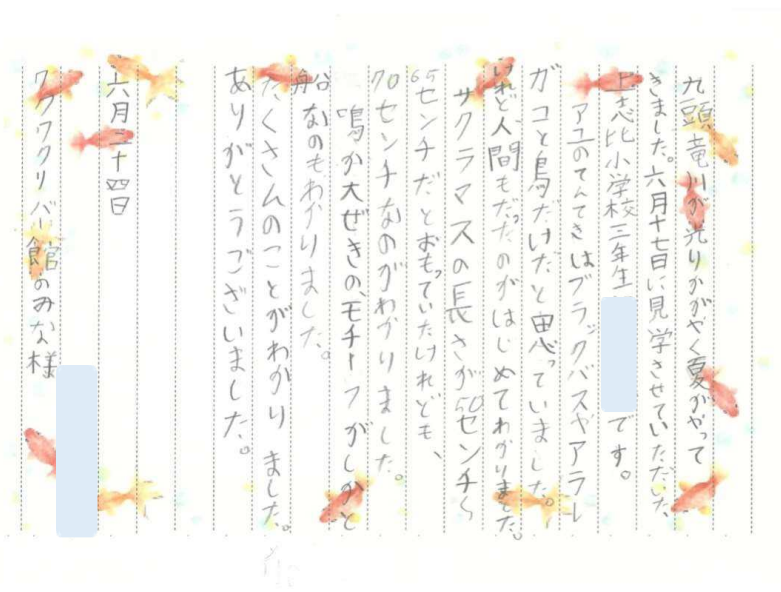 九頭竜川が光りかがやく夏がやって
きました。六月十七日に見学させていただいた、
上志比小学校三年生
です。
アユのてんてきはブラックバスやアラレ
ガコと鳥だけだと思っていました。
けれど、人間もだったのがはじめてわかりました。
サクラマスの長さが50センチ〜
65センチだとおもっていたけれども、
70センチなのがわかりました。
鳴か大ぜきの、モチーフがしかと
船なのも、わかりました。
たくさんのことがわかりました。
ありがとうございました。
六月二十四日
ワクワクリバー館のみな様